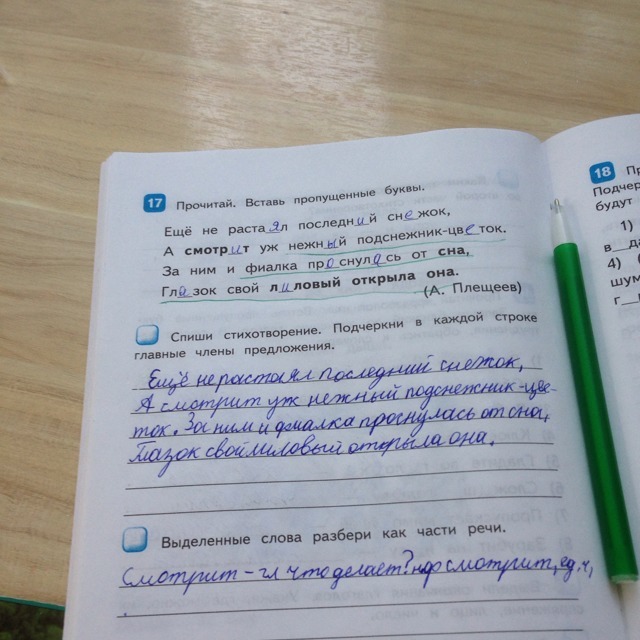 17 Прочитай. Вставь пропущенные буквы.
Ещё не растаял последний снежок,
А смотрит уж нежный подснежник-цветок.
За ним и фиалка проснулась от сна,
Глазок свой лиловый открыла она.
(А. Плещеев)
Спиши стихотворение. Подчеркни в каждой строке
главные члены предложения.
Ещё не растаял последний снежок,
А смотрит уж нежный подснежник-цве-
ток. За ним и фиалка проснулась от сна,
Глазок свой лиловый открыла она.
Выделенные слова разбери как части речи.
Смотрит – гл что делает? нф смотрит, ед. ч,
18 П
Подчер
будут
1)
в д
4)
шум
г